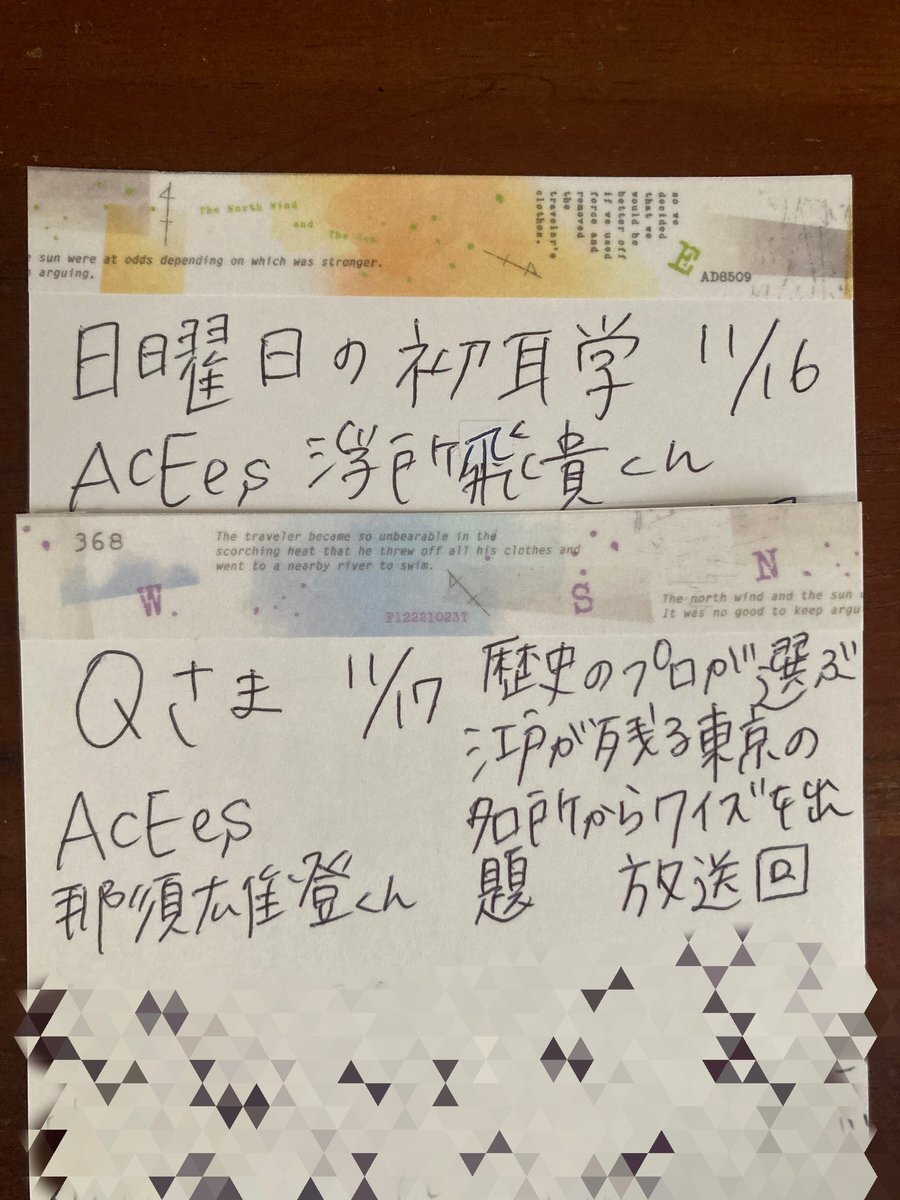 The North Wind
and
The Sun
sun were at odds depending on which was stronger.
arguing.
so we
decided
that we
would be
better off
if we used
force and
removed
the
traveler's
clothes.
E
AD8509
日曜日の初耳学 11/16
AcEes 浮所飛貴くん
368
The traveler became so unbearable in the
scorching heat that he threw off all his clothes and
went to a nearby river to swim.
W
S
N
F12221023T
The north wind and the sun
It was no good to keep argu
Qさま 11/17
AcEes
那須雄登くん
歴史のプロが選ぶ
江戸が残る東京の
名所からクイズを出
題 放送回